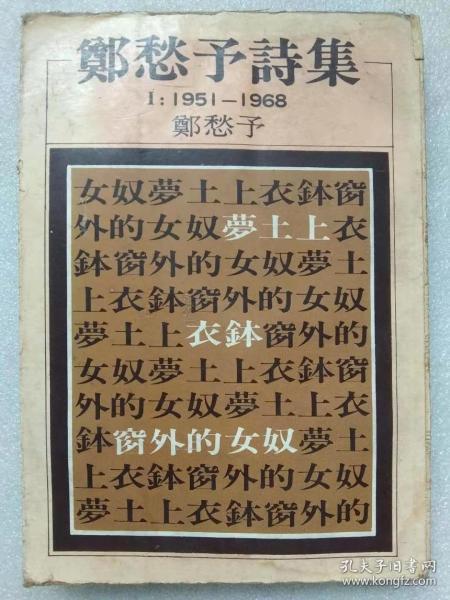 鄭愁予詩集
I:1951—1968
鄭愁予
女奴夢土上衣鉢窗
外的女奴夢土上衣
鉢窗外的女奴夢土
上衣鉢窗外的女奴
夢土上衣鉢窗外的
女奴夢土上衣鉢窗
外的女奴夢土上衣
鉢窗外的女奴夢土
上衣鉢窗外的女奴
夢土上衣鉢窗外的
孔夫子旧书网
www.kongfz.com